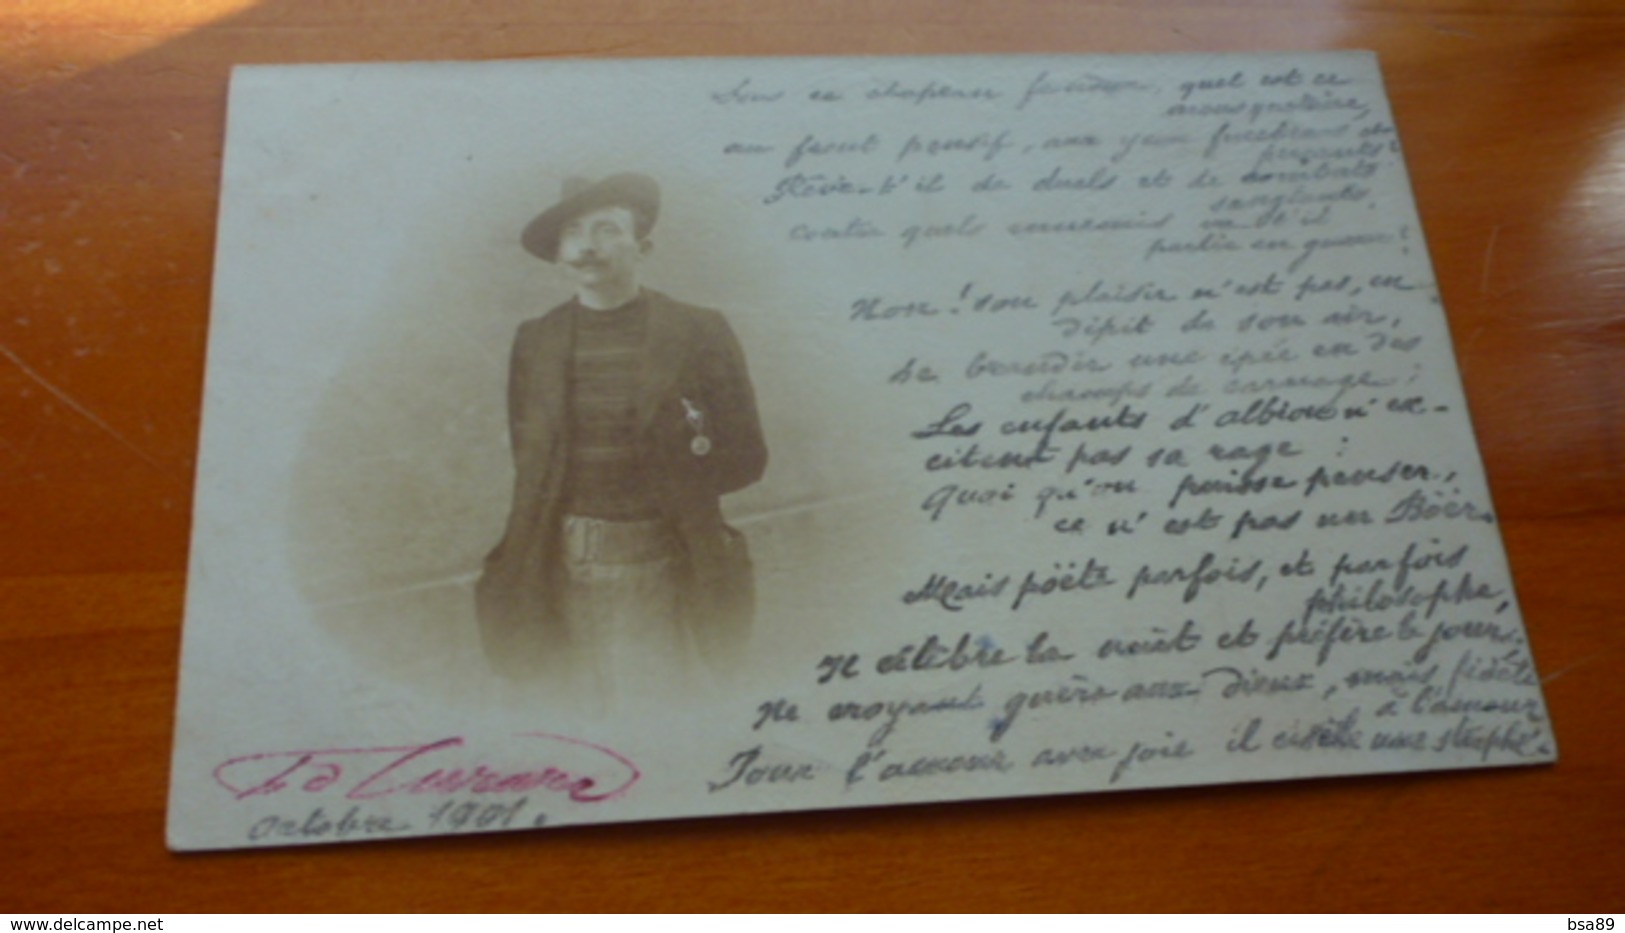 Sous ce chapeau quel est ce
mousquetaire,
au front pensif, aux yeux funèbres et
perçants?
Rêve-t'il de duels et de combats
sanglants,
contre quels ennemis va-t'il
partir en guerre?
Non! son plaisir n'est pas, en
dépit de son air,
de brandir une épée en des
champs de carnage;
Les enfants d'albion n'ex-
citent pas sa rage:
Quoi qu'on puisse penser,
ce n'est pas un Böër.
Mais pöëte parfois, et parfois
philosophe,
Il célèbre la nuit et préfère le jour,
Ne croyant guère aux dieux, mais fidèle
à l'amour
Pour l'amour avec joie il cisèle une strophe.
octobre 1901.
delcampe.net
bsa89